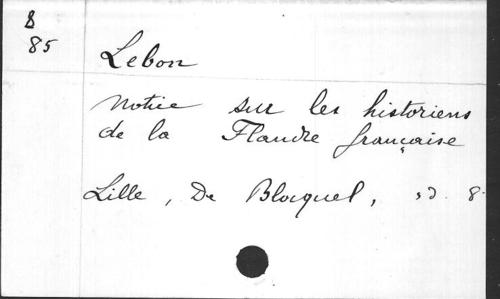 8
85
Lebon
Notice sur les historiens
de la Flandre française
Lille, De Blocquel, s d. 8.